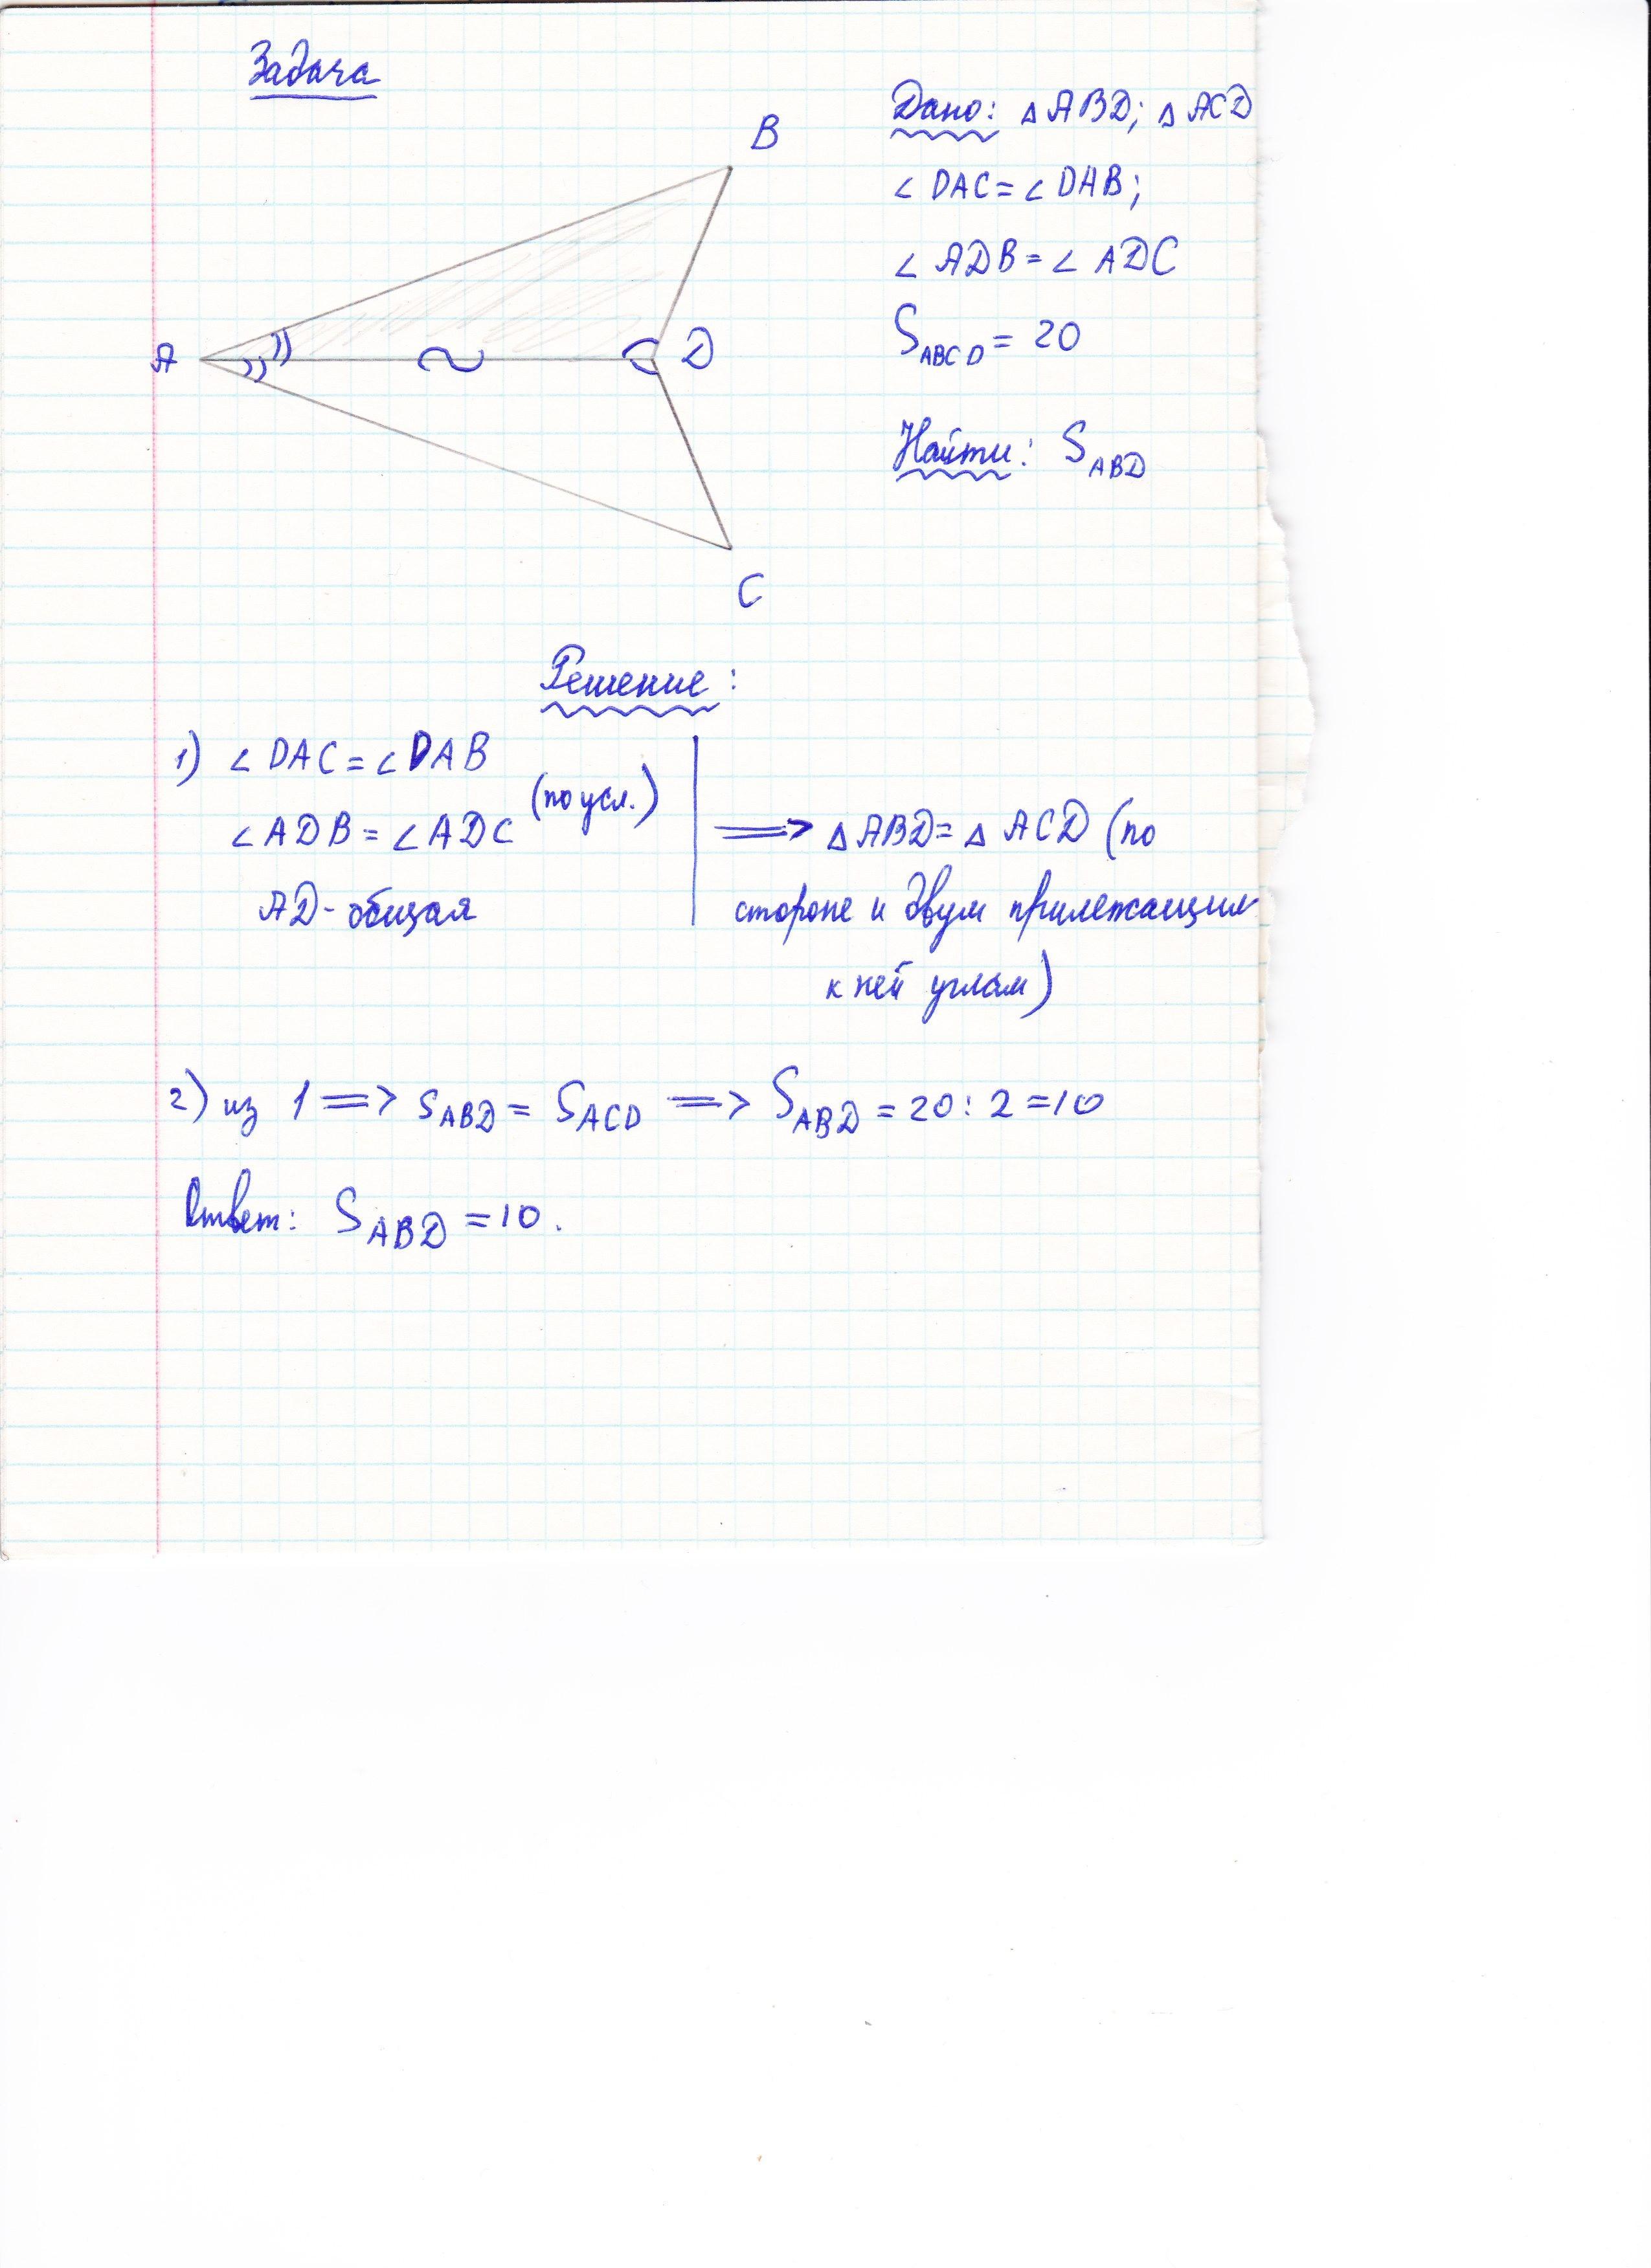 Задача
B
A
D
C
Дано: △ABD; △ACD
∠DAC=∠DAB;
∠ADB=∠ADC
S_ABCD = 20
Найти: S_ABD
Решение:
1) ∠DAC=∠DAB
∠ADB=∠ADC (по усл.)
AD-общая
=> △ABD=△ACD (по
стороне и двум прилежащим
к ней углам)
2) из 1 => S_ABD = S_ACD => S_ABD = 20:2=10
Ответ: S_ABD =10.